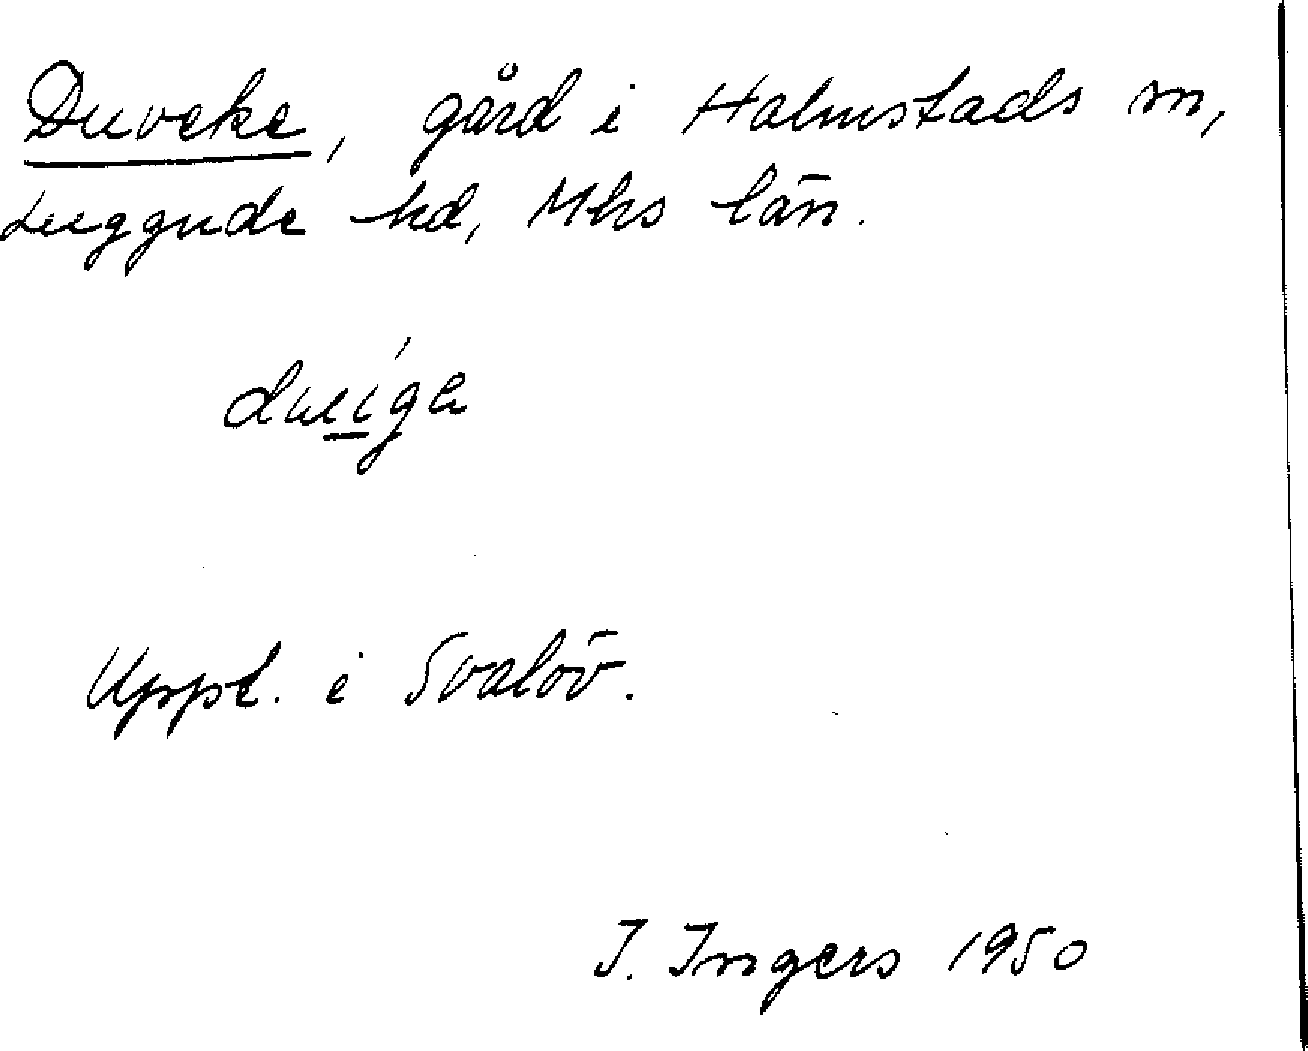 Duveke, gård i Halmstads sn,
Luggude hd, Mhs län.
Uppt. i Svalöv.
I. Ingers 1950